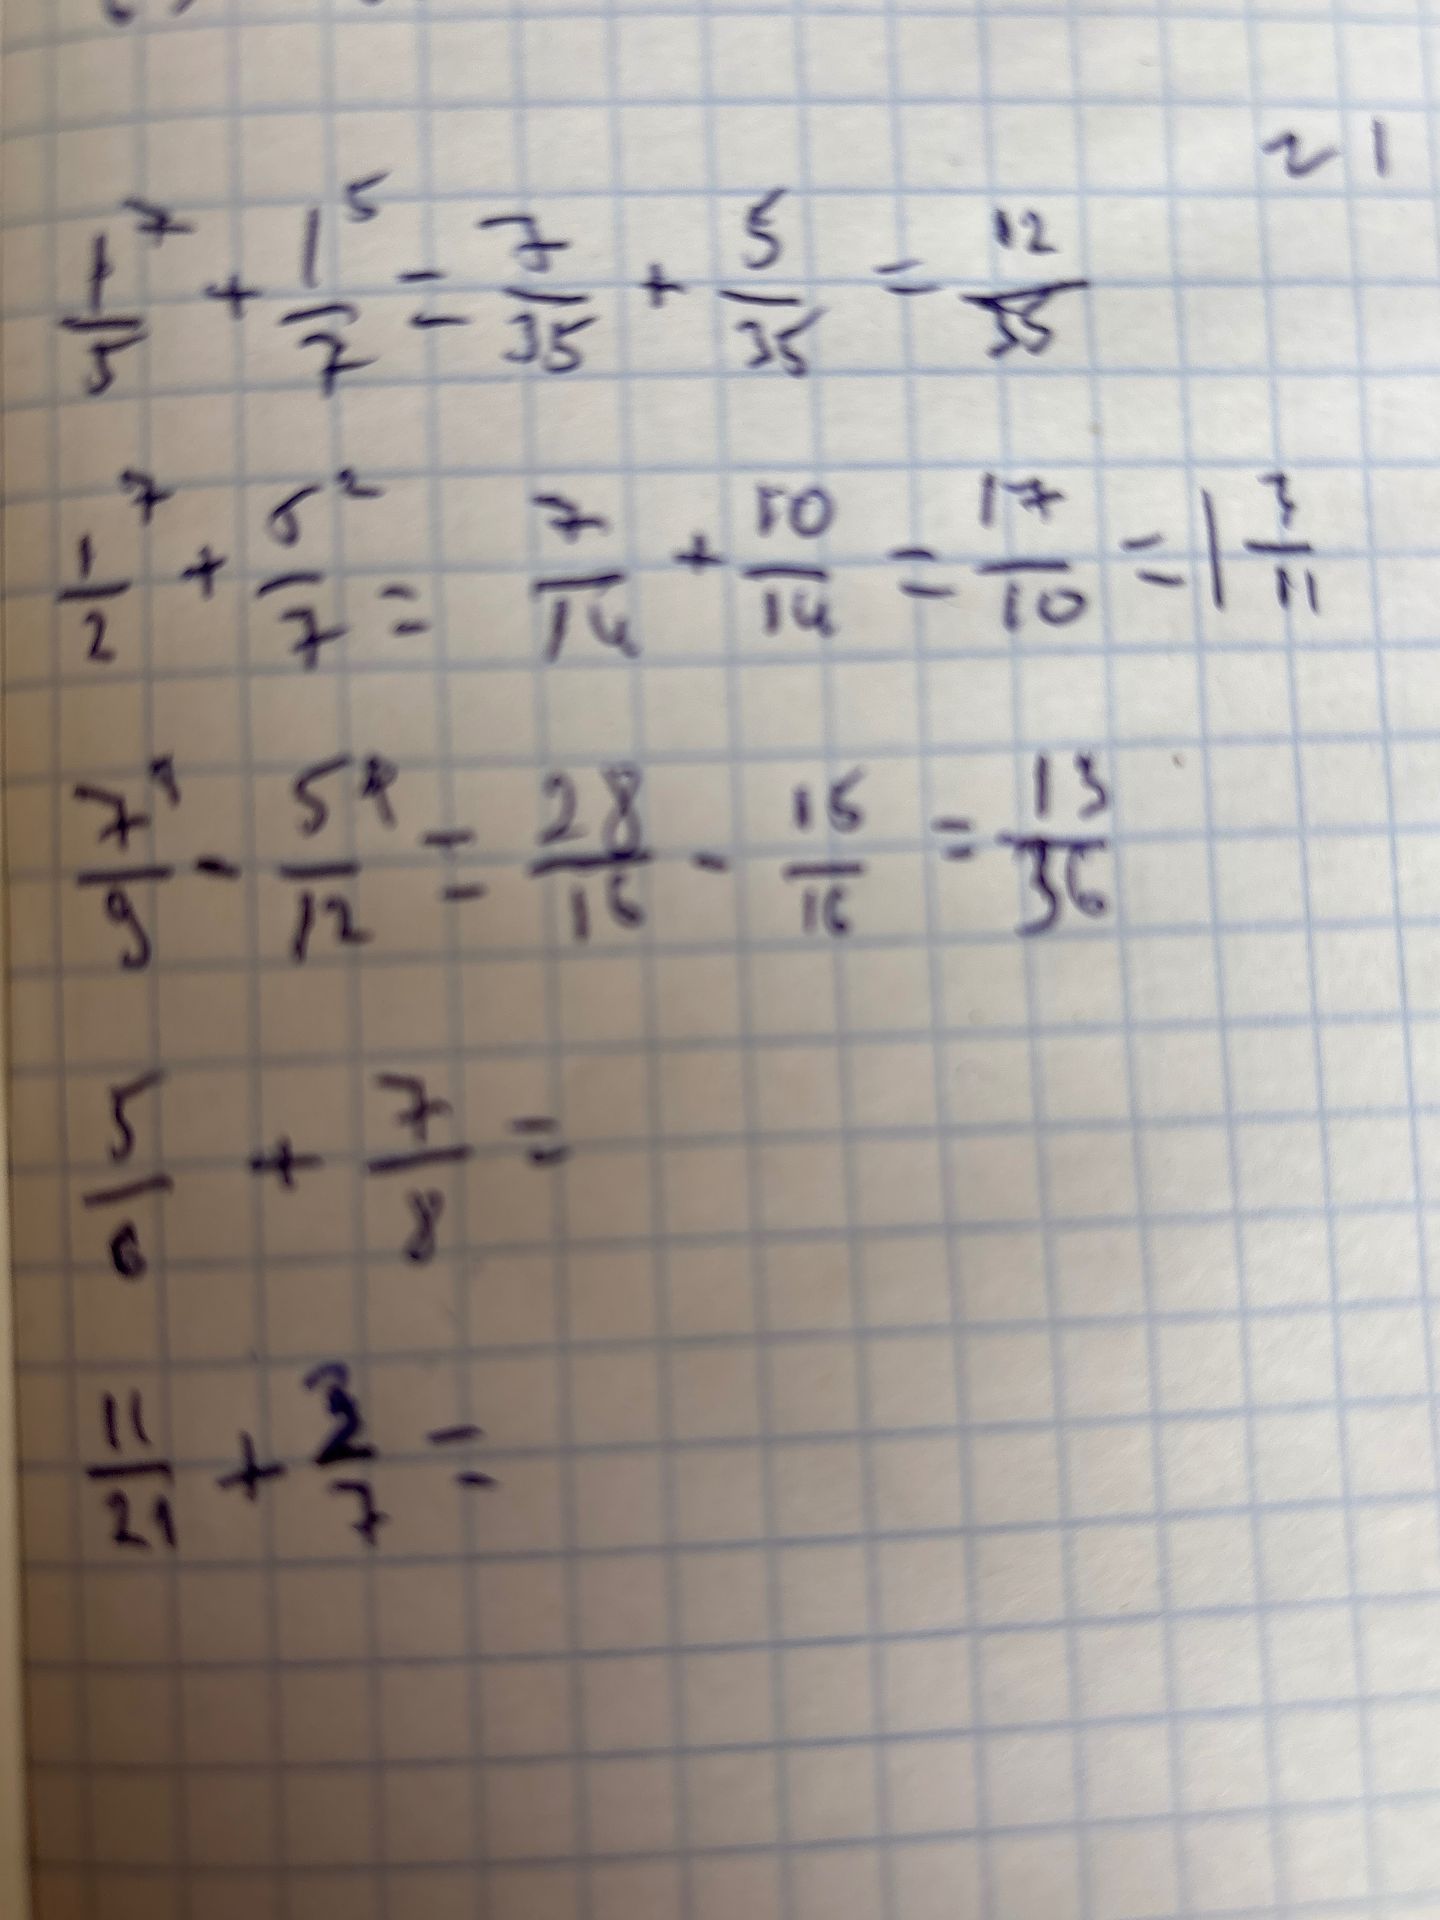 21
1/5 ⁷ + 1/7 ⁵ = 7/35 + 5/35 = 12/35
1/2 ⁷ + 5/7 ² = 7/14 + 10/14 = 17/10 = 1 3/11
7/9 - 5/12 = 28/16 - 15/16 = 13/36
5/6 + 7/8 =
11/21 + 2/7 =